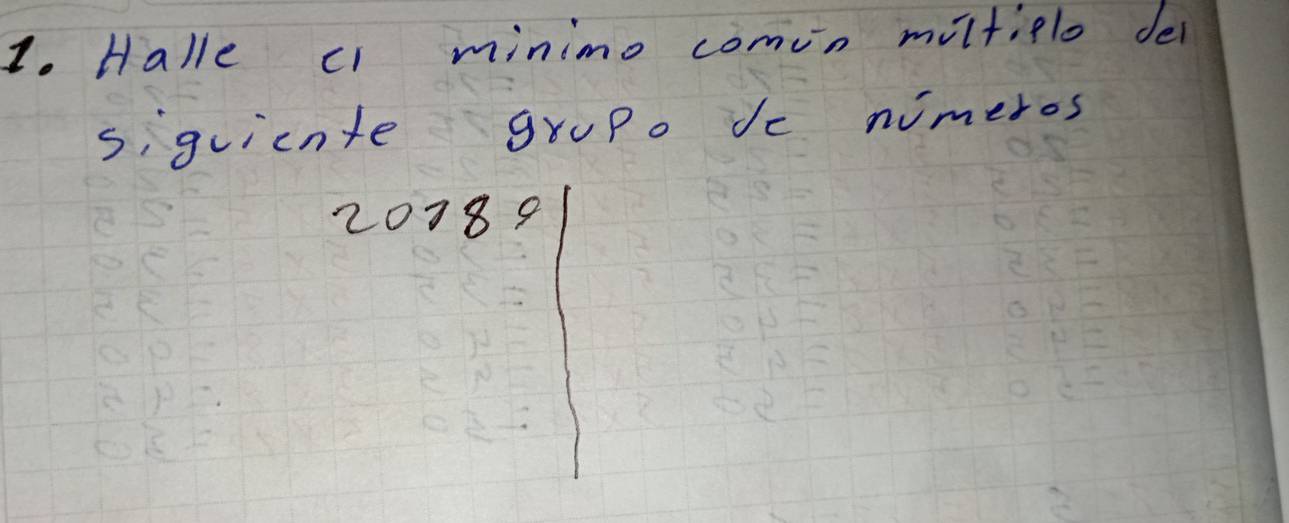 1. Halle el minimo común múltiplo del
siguiente grupo de números
20 18 9